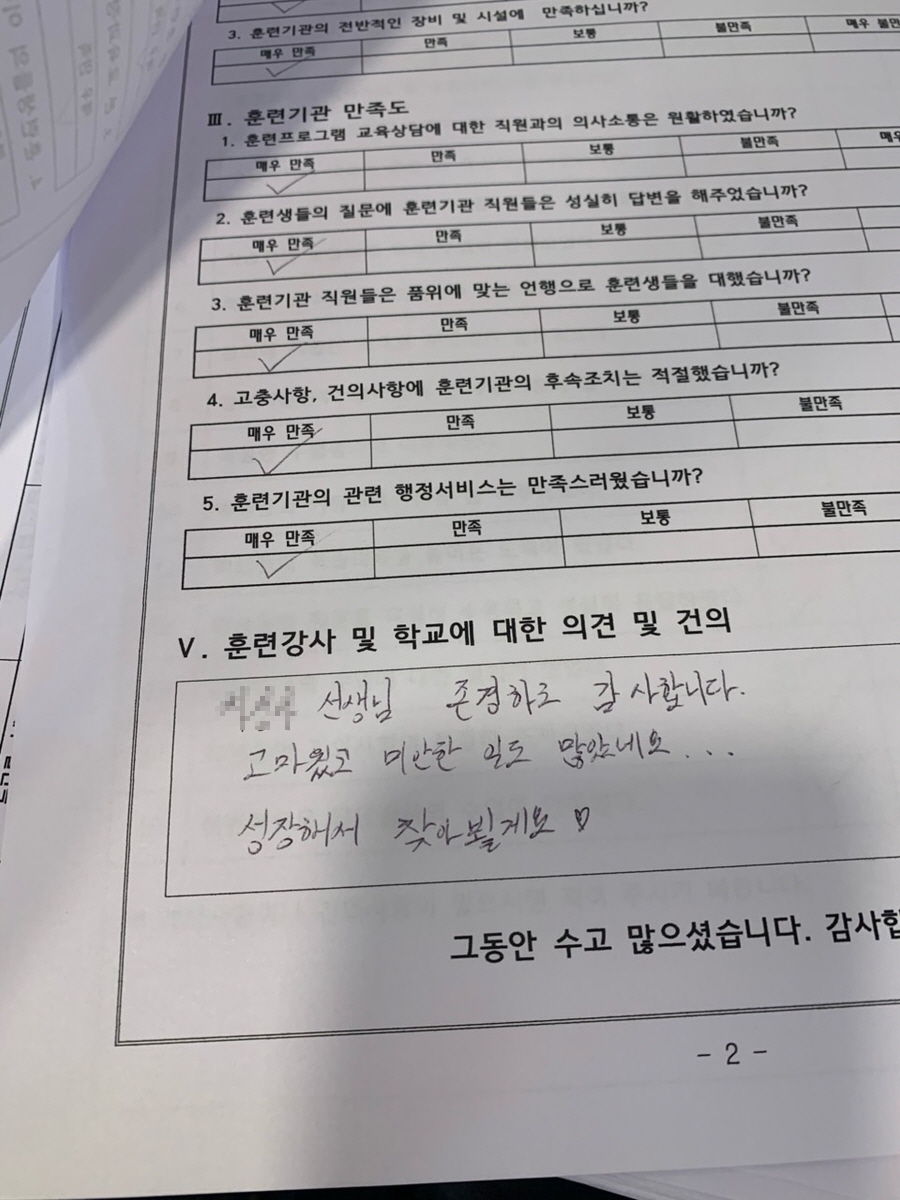 3. 훈련기관의 전반적인 장비 및 시설에 만족하십니까?
매우 만족 만족 보통 불만족 매우 불만
Ⅲ. 훈련기관 만족도
1. 훈련프로그램 교육상담에 대한 직원과의 의사소통은 원활하였습니까?
매우 만족 만족 보통 불만족 매우
2. 훈련생들의 질문에 훈련기관 직원들은 성실히 답변을 해주었습니까?
매우 만족 만족 보통 불만족
3. 훈련기관 직원들은 품위에 맞는 언행으로 훈련생들을 대했습니까?
매우 만족 만족 보통 불만족
4. 고충사항, 건의사항에 훈련기관의 후속조치는 적절했습니까?
매우 만족 만족 보통 불만족
5. 훈련기관의 관련 행정서비스는 만족스러웠습니까?
매우 만족 만족 보통 불만족
Ⅴ. 훈련강사 및 학교에 대한 의견 및 건의
선생님 존경하고 감사합니다.
고마웠고 미안한 일도 많았네요...
성장해서 찾아뵐게요 ♡
그동안 수고 많으셨습니다. 감사합
- 2 -